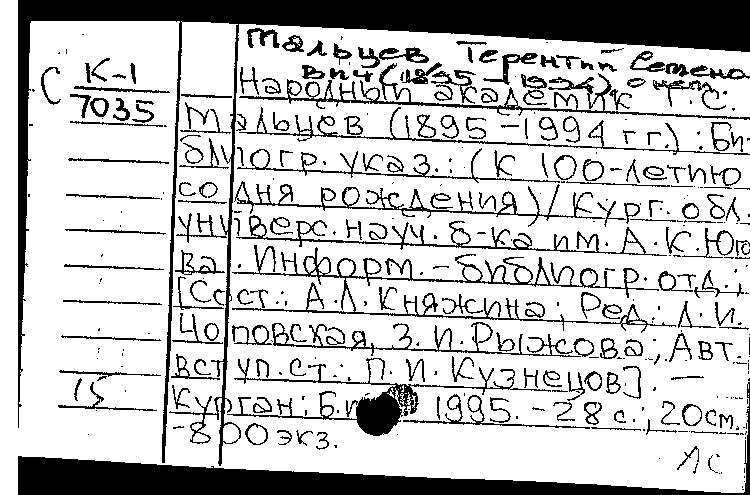 Мальцев Терентий Семено
вич (1895-1994), о нем.
С К-1
7035
Народный академик Т.С.
Мальцев (1895-1994 гг.): Би-
блиогр. указ.: (К 100-летию
со дня рождения)/Кург. обл.
универс. науч. б-ка им. А.К. Юго
ва. Информ.-библиогр. отд.;
[Сост.: А.Л. Княжина; Ред.: Л.И.
Чоповская, З.И. Рыжова; Авт.
вступ. ст.: П.И. Кузнецов]. —
15
Курган: Б.и. 1995. - 28 с.; 20см.
-800экз.
ЛС